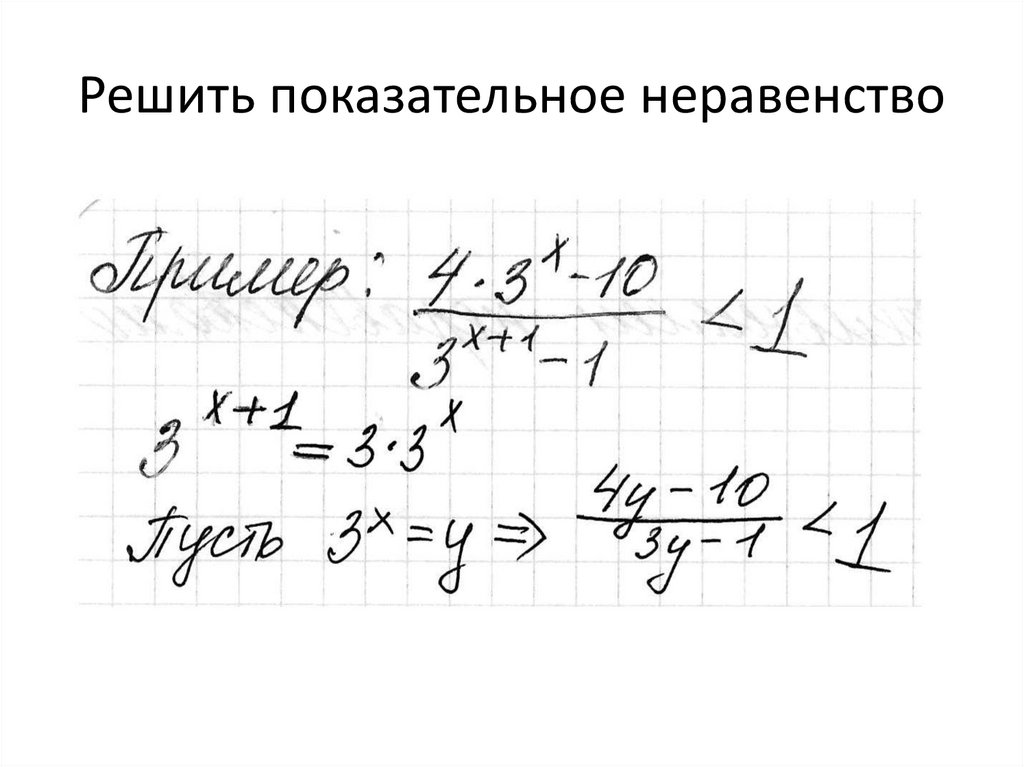 Решить показательное неравенство
Пример: (4·3^x-10)/(3^(x+1)-1) < 1
3^(x+1) = 3·3^x
Пусть 3^x = y ⇒ (4y-10)/(3y-1) < 1